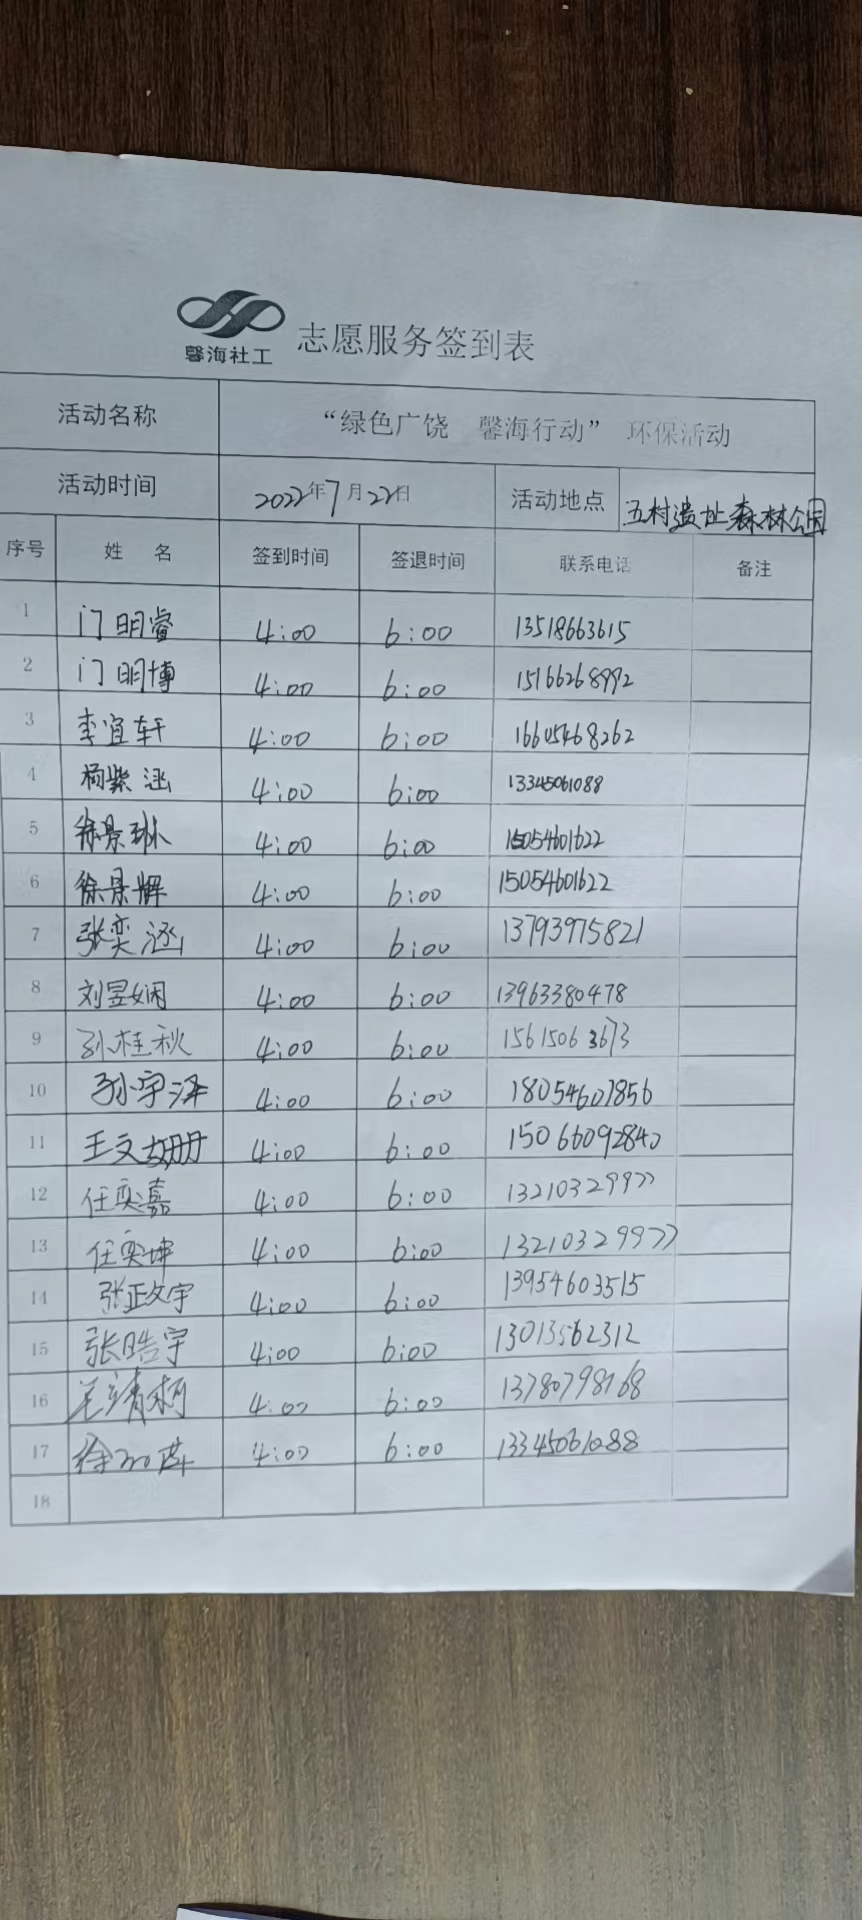 馨海社工 志愿服务签到表
活动名称 “绿色广饶 馨海行动” 环保活动
活动时间 2022年7月22日 活动地点 五村遗址森林公园
序号 姓 名 签到时间 签退时间 联系电话 备注
1 门明睿 4:00 6:00 13518663615
2 门明博 4:00 6:00 15166268992
3 李宜轩 4:00 6:00 16605468262
4 杨紫涵 4:00 6:00 13345061088
5 徐景琳 4:00 6:00 15054601622
6 徐景辉 4:00 6:00 15054601622
7 张奕涵 4:00 6:00 13793975821
8 刘昱娴 4:00 6:00 13963380478
9 孙桂秋 4:00 6:00 15615063673
10 孙宇泽 4:00 6:00 18054607856
11 王文姗 4:00 6:00 15066092840
12 任奕嘉 4:00 6:00 13210329977
13 任奕坤 4:00 6:00 13210329977
14 张正文宇 4:00 6:00 13954603515
15 张皓宇 4:00 6:00 13013562312
16 靖柯 4:00 6:00 13780798168
17 徐 4:00 6:00 13345061088
18